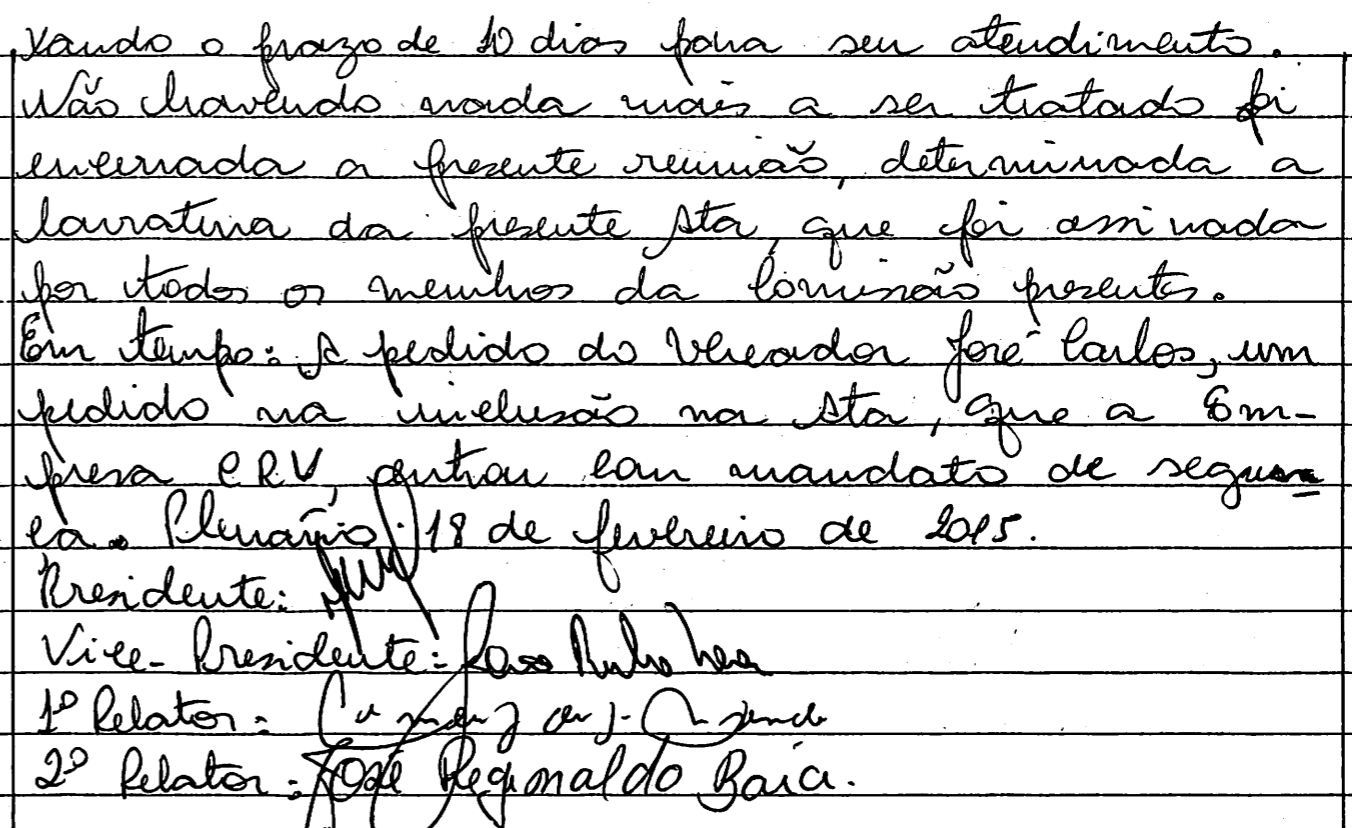 xando o prazo de 10 dias para seu atendimento.
Não havendo nada mais a ser tratado foi
encerrada a presente reunião, determinada a
lavratura da presente Ata, que foi assinada
por todos os membros da Comissão presentes.
Em tempo: A pedido do Vereador José Carlos, um
pedido na inclusão na Ata, que a Em-
presa CRV, entrou com mandato de seguran
ça. Plenário, 18 de fevereiro de 2015.
Presidente:
Vice-Presidente:
1º Relator:
2º Relator: José Reginaldo Baía.